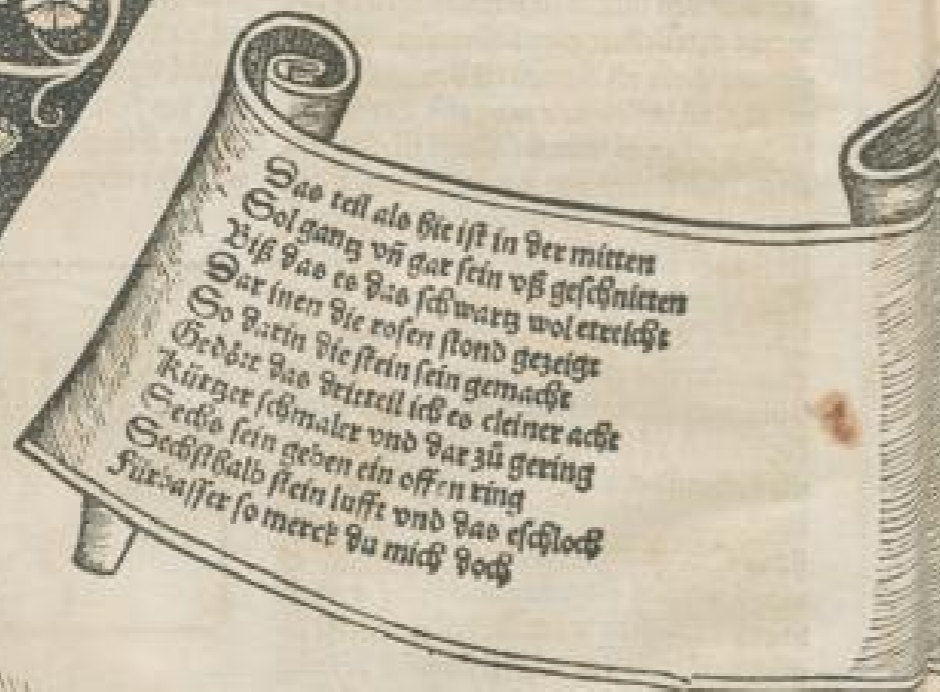 Das teil als hie ist in der mitten
Sol gantz vñ gar sein vß geschnitten
Biß das es das schwartz wol erreicht
Dar inen die rosen stond gezeigt
So darin die stein sein gemacht
Gedöxt das dritteil ich es cleiner acht
Kürtzer schmaler vnd dar zů gering
Sechs sein geben ein offen ring
Sechsthalb stein lufft vnd das eschloch
Fürbasser so merck du mich doch